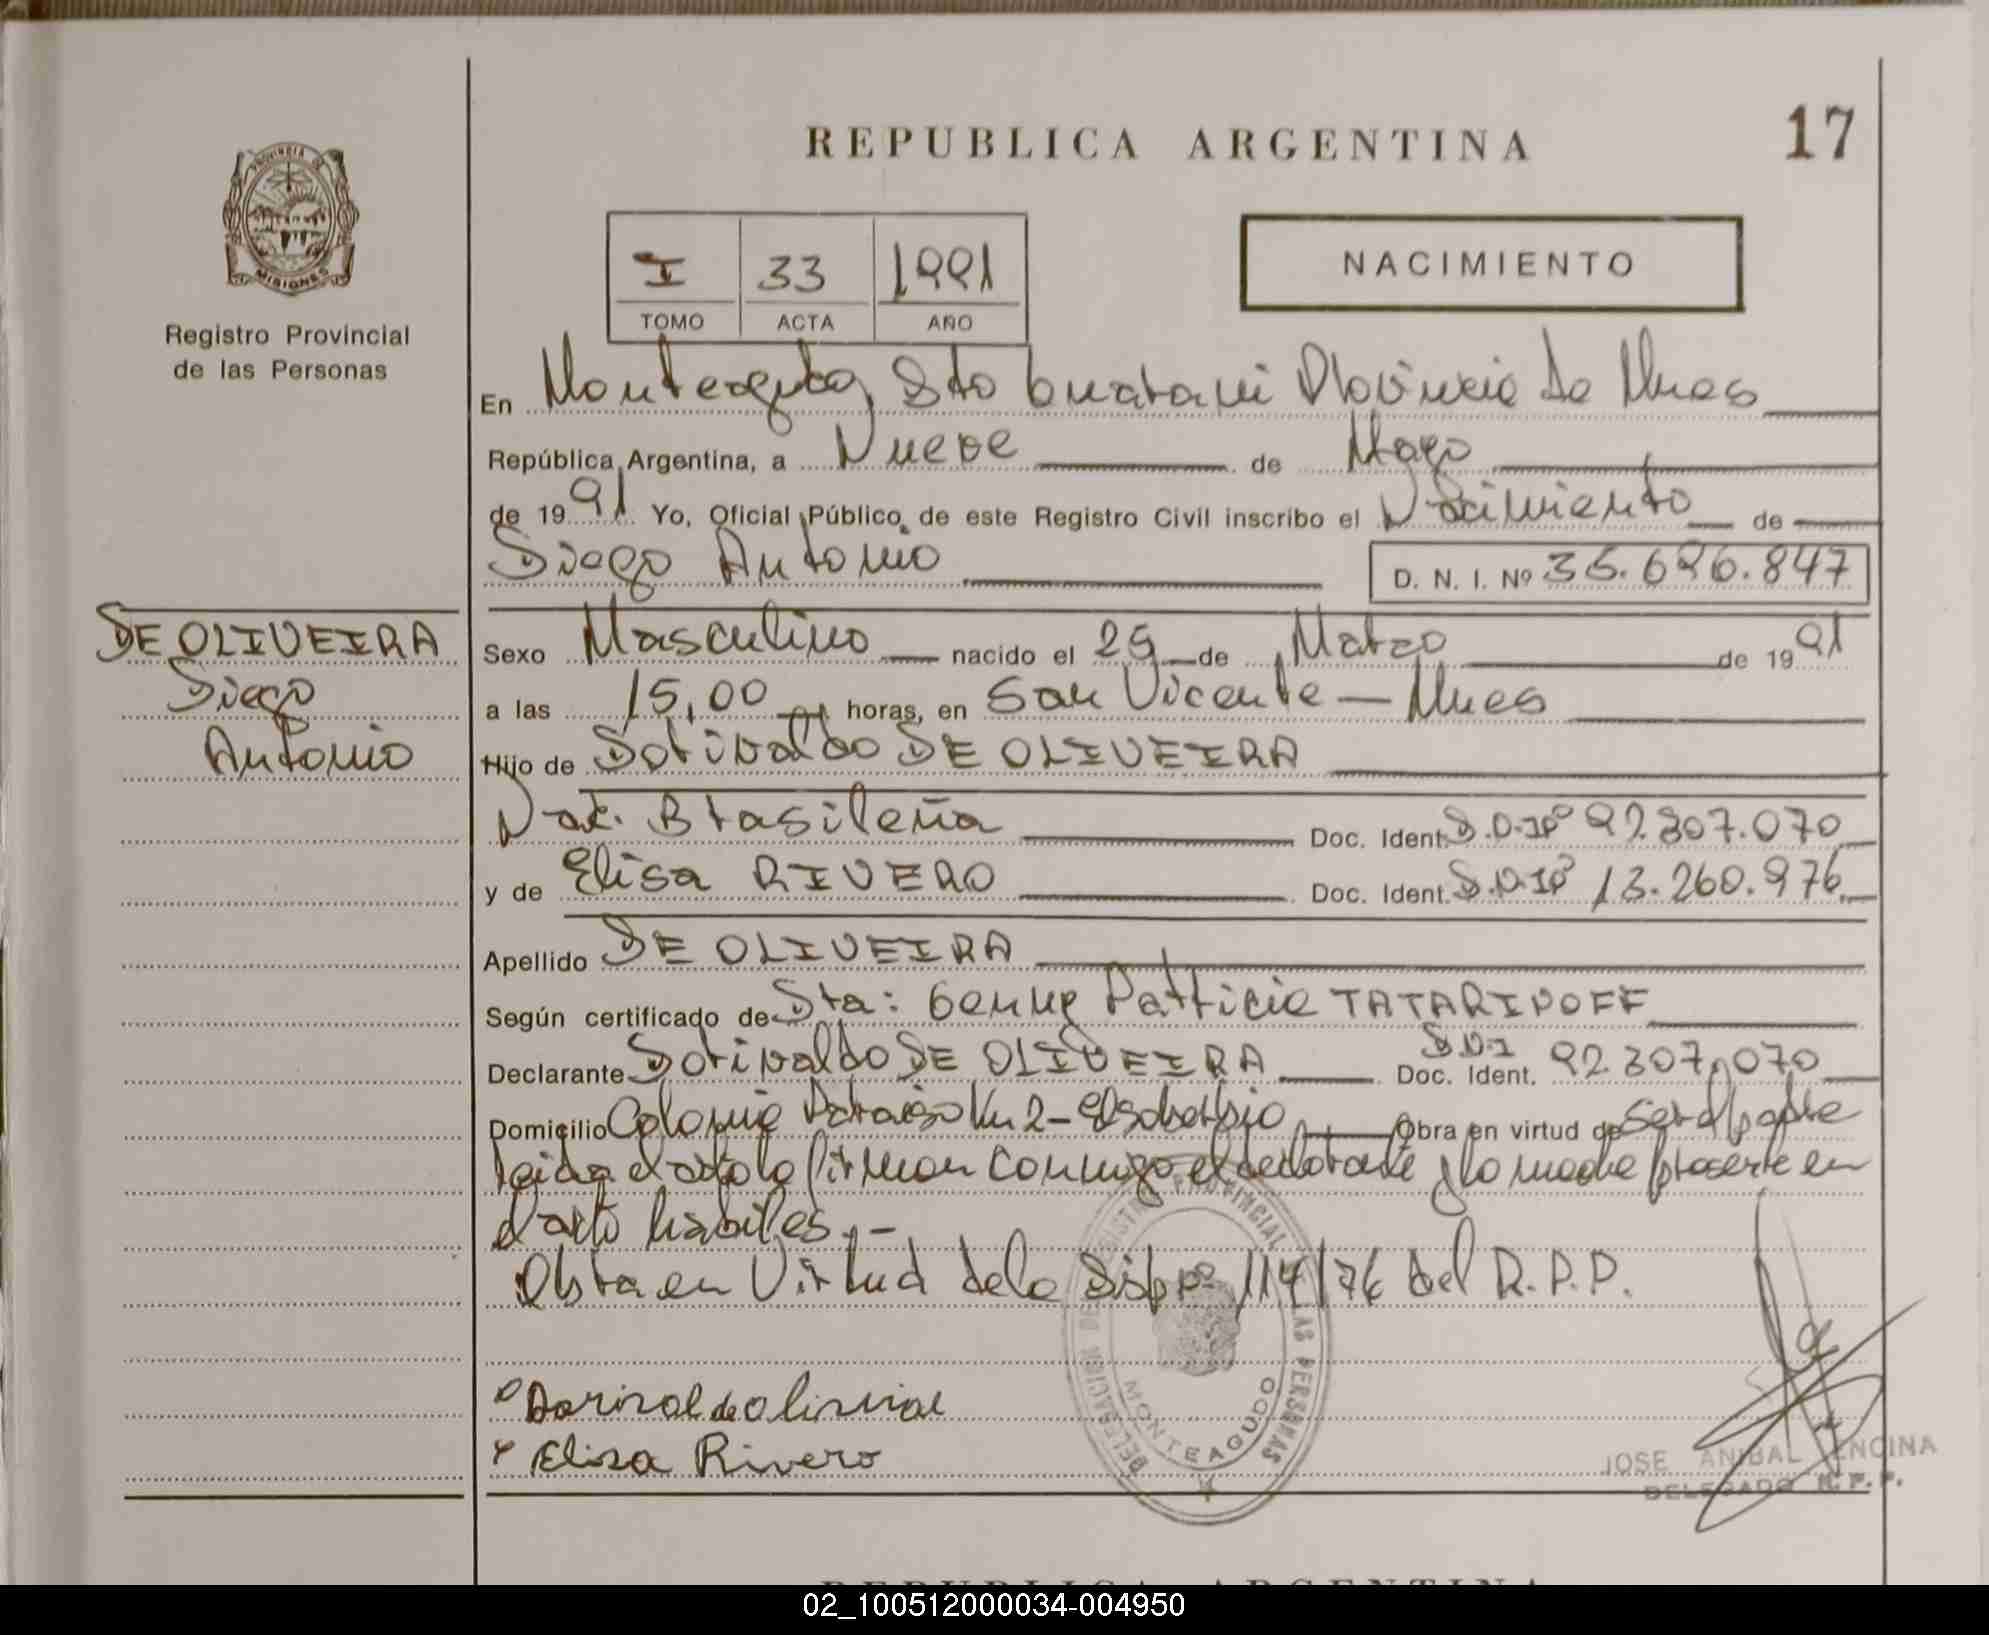 REPUBLICA ARGENTINA
17
PROVINCIA DE
MISIONES
Registro Provincial
de las Personas
I 33 1991
TOMO ACTA AÑO
NACIMIENTO
En Monteagudo, Gto Guarani Provincia de Mnes
República Argentina, a Nueve de Mayo
de 1991 Yo, Oficial Público, de este Registro Civil inscribo el Nacimiento de
Diego Antonio D. N. I. Nº 35.696.847
DE OLIVEIRA
Diego
Antonio
Sexo Masculino nacido el 25 de Marzo de 1991
a las 15,00 horas, en San Vicente - Mnes
Hijo de Dorivaldo DE OLIVEIRA
Nac. Brasileña Doc. Ident. D.N.Iº 92.307.070
y de Elisa RIVERO Doc. Ident. D.N.Iº 13.260.976
Apellido DE OLIVEIRA
Según certificado de Sra: Genny Patricia TATARINOFF
Declarante Dorivaldo DE OLIVEIRA Doc. Ident. D.N.I 92.307.070
Domicilio Colonia Paraiso Km 2 - El Soberbio Obra en virtud de Ser el padre
leida el acta la firman conmigo el declarante y la madre presente en
el acto habiles.-
Obra en Virtud de la Disp Nº 114/76 del R.P.P.
Dorival de oliviral
x Elisa Rivero
DELEGACION DE REGISTRO PROVINCIAL DE LAS PERSONAS
MONTEAGUDO
JOSE ANIBAL ENCINA
DELEGADO R.P.P.
REPUBLICA ARGENTINA
02_100512000034-004950